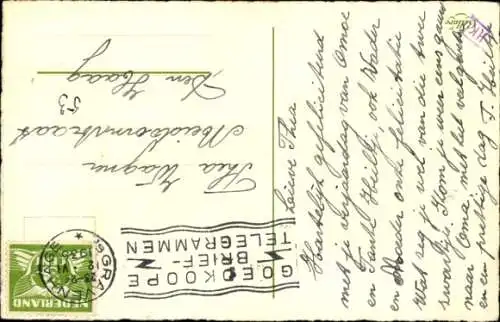 Lieve Thea
Hartelijk gefeliciteerd
met je verjaardag van Omoe
en Tante Heiltje, ook Vader
en Moeder onze felicitatie
Wat zeg je wel van die twee
Kom je weer eens gauw
naar Oma, met het volgende
en prettige dag T. Heiltje
Thea Wagner
Meidoornstraat
53
Den Haag
GOEDKOOPE
BRIEF-
TELEGRAMMEN
'S GRAVENHAGE
NEDERLAND